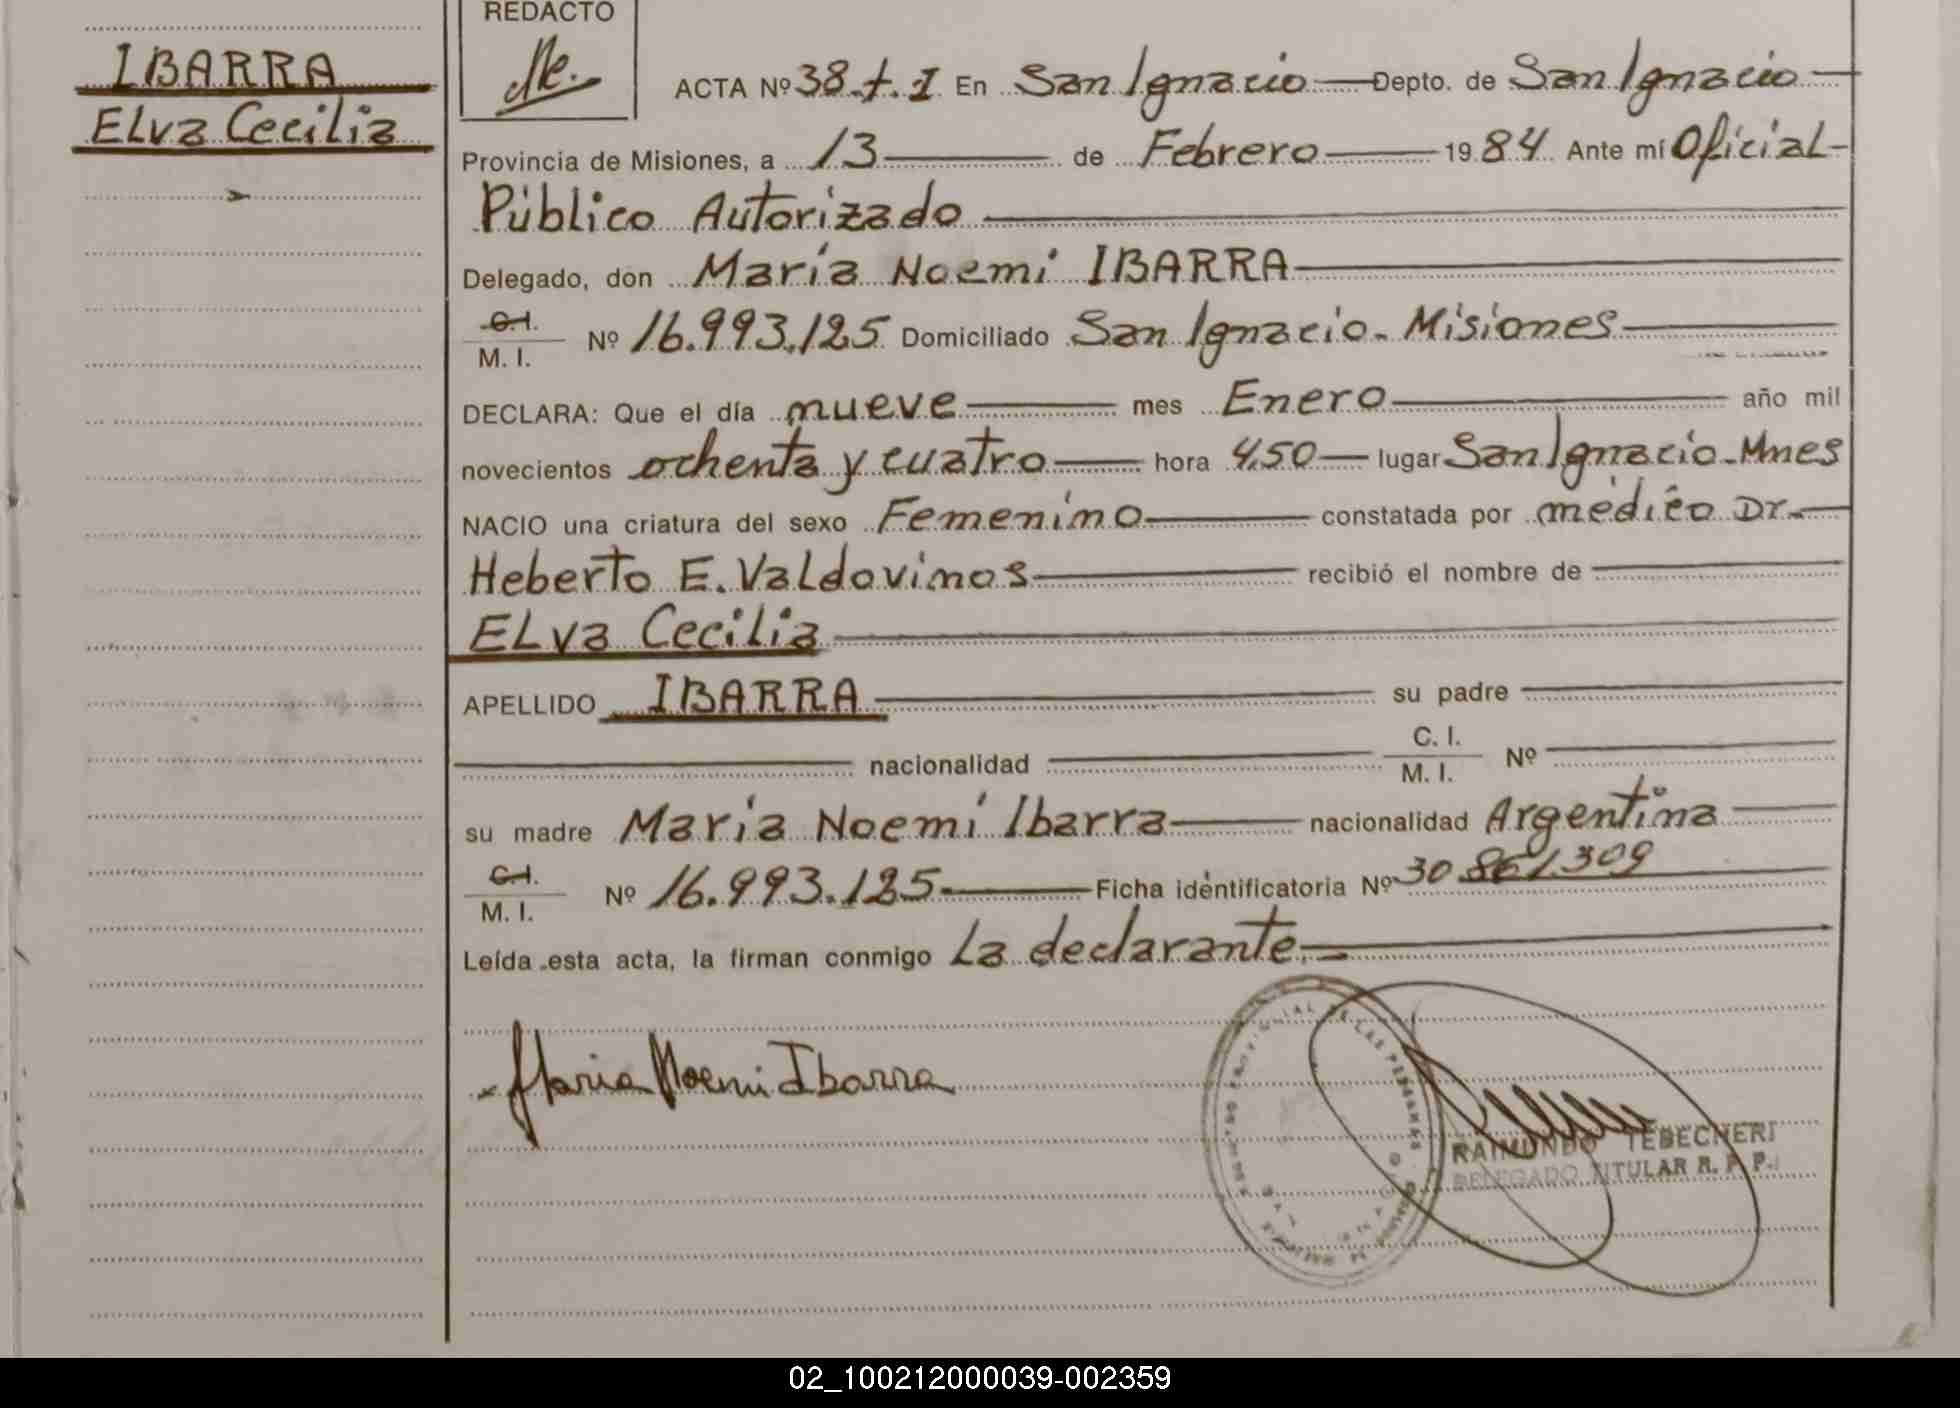 IBARRA
ELva Cecilia
REDACTO
ACTA Nº 38.t.I En San Ignacio Depto. de San Ignacio
Provincia de Misiones, a 13 de Febrero 1984 Ante mí Oficial
Público Autorizado
Delegado, don María Noemi IBARRA
C.I.
M. I. Nº 16.993.125 Domiciliado San Ignacio. Misiones
DECLARA: Que el día nueve mes Enero año mil
novecientos ochenta y cuatro hora 4,50 lugar San Ignacio. Mnes
NACIO una criatura del sexo Femenino constatada por médico Dr.
Heberto E. Valdovinos recibió el nombre de
ELva Cecilia
APELLIDO IBARRA su padre
nacionalidad C. I.
M. I. Nº
su madre María Noemí Ibarra nacionalidad Argentina
C.I.
M. I. Nº 16.993.125 Ficha identificatoria Nº 30 861.309
Leída esta acta, la firman conmigo La declarante.
Maria Noemi Ibarra
DE LAS PERSONAS
RAIMUNDO TEBECHERI
DELEGADO TITULAR R. P. P.
02_100212000039-002359